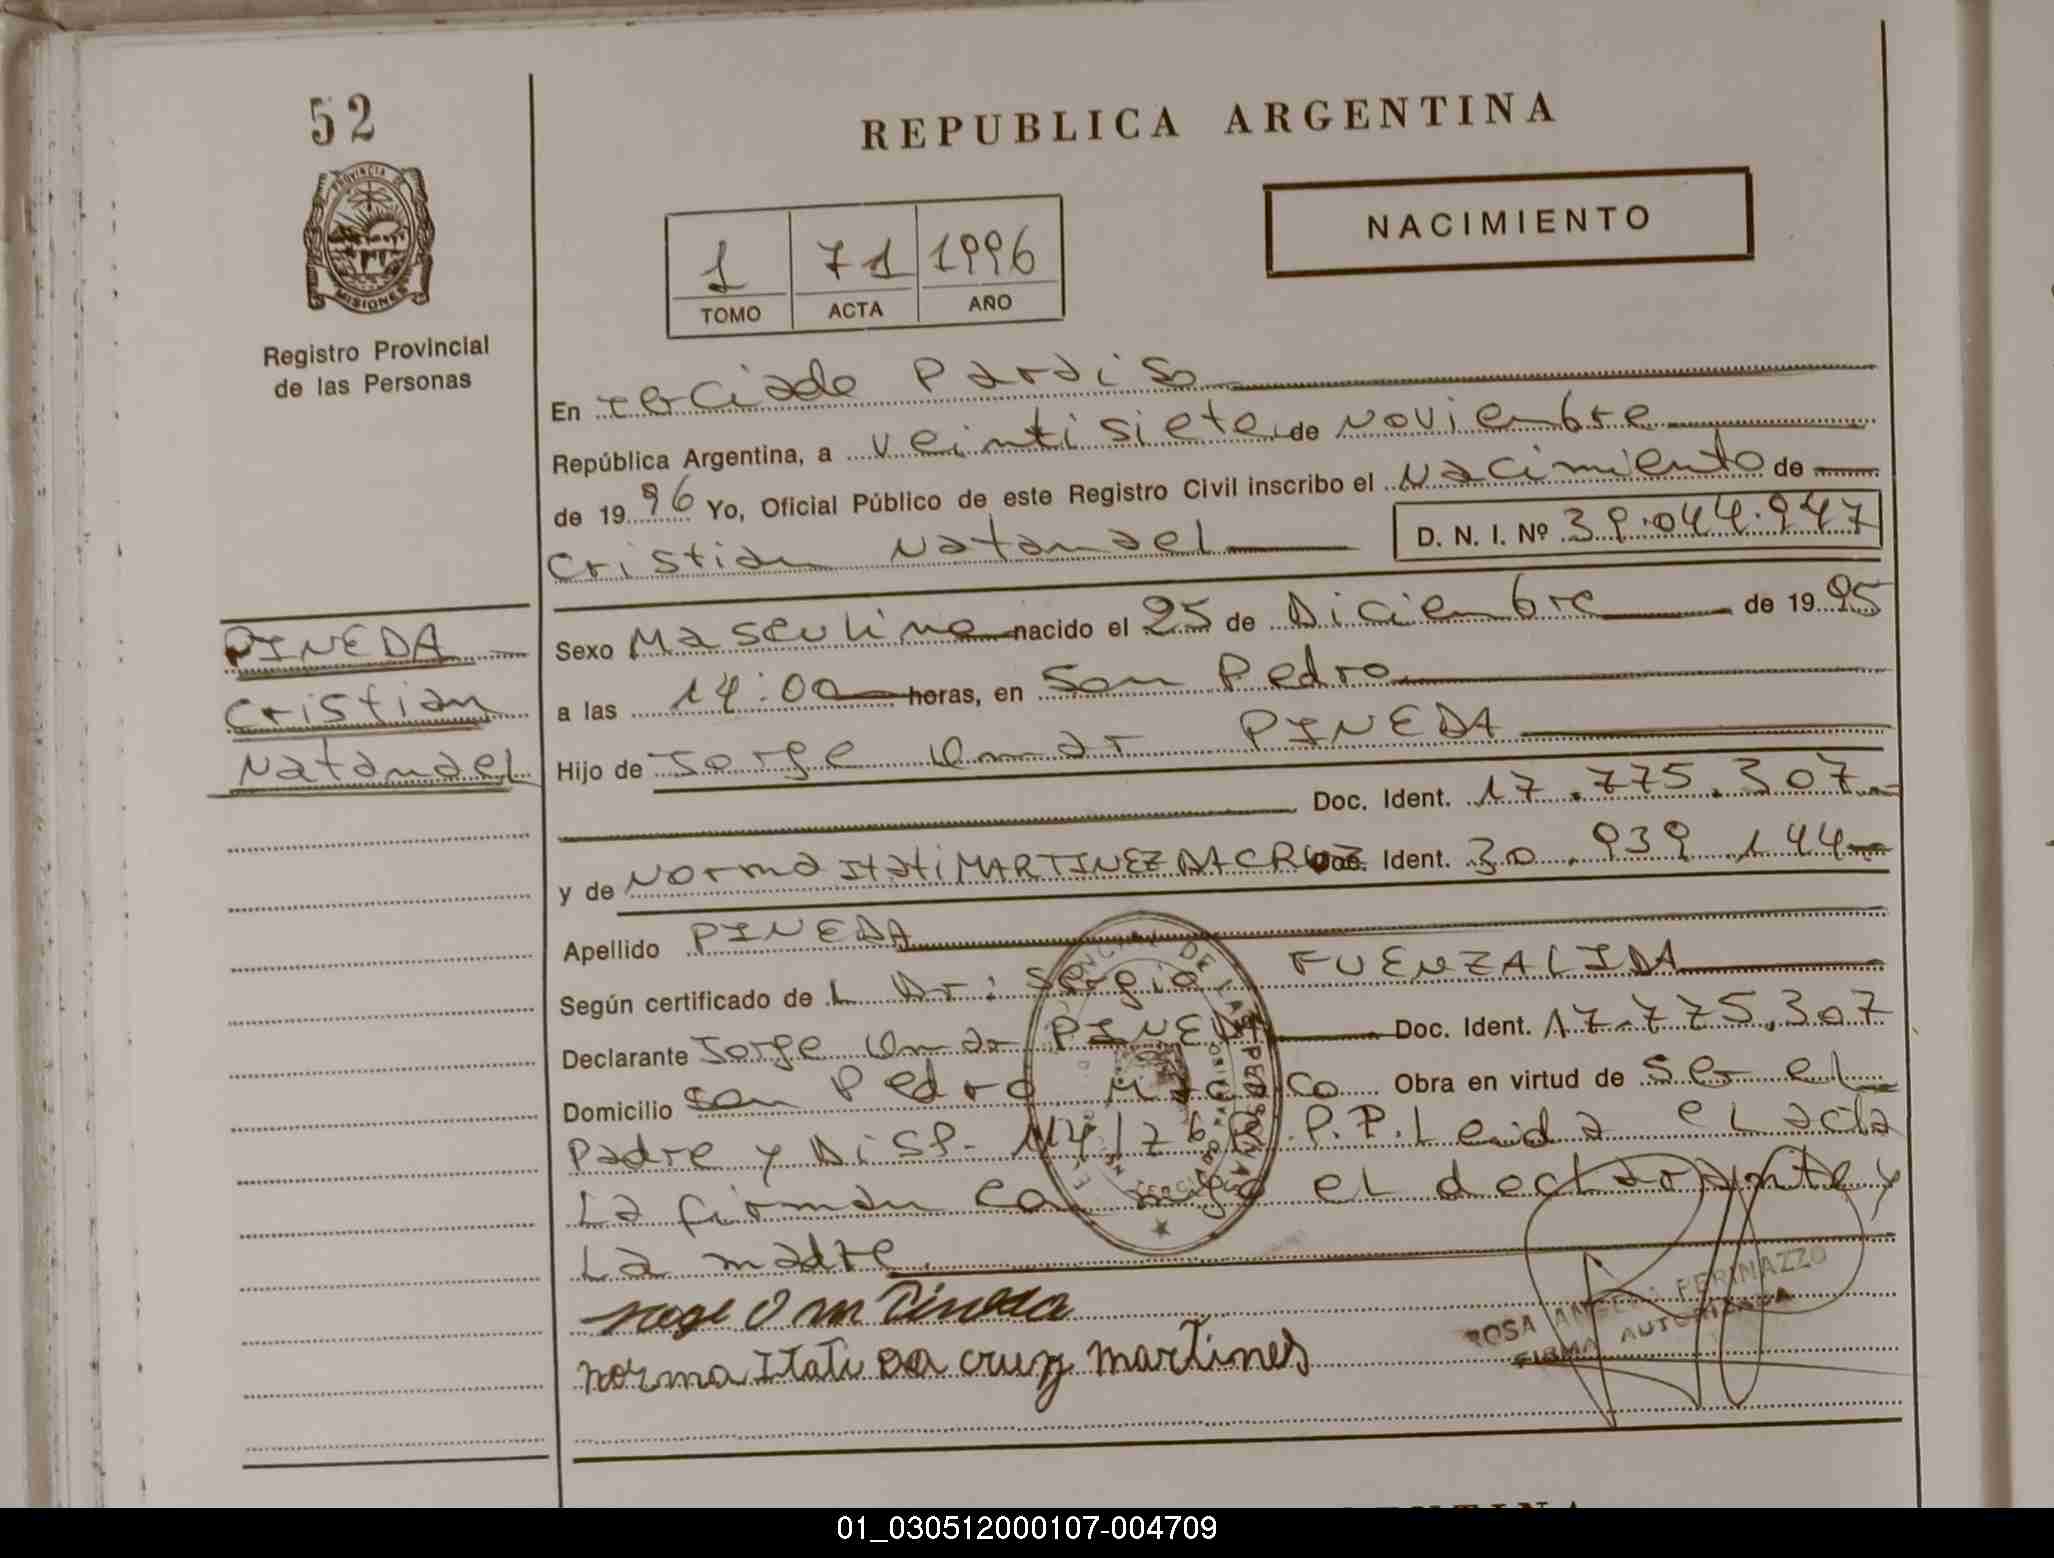 52
REPUBLICA ARGENTINA
NACIMIENTO
PROVINCIA DE
MISIONES
1 71 1996
TOMO ACTA AÑO
Registro Provincial
de las Personas
En Terciado Paraiso
República Argentina, a veintisiete de Noviembre
de 1996 Yo, Oficial Público de este Registro Civil inscribo el Nacimiento de
Cristian Natanael D. N. I. Nº 39.044.947
PINEDA
Cristian
Natanael
Sexo Masculino nacido el 25 de Diciembre de 1995
a las 14:00 horas, en San Pedro
Hijo de Jorge Omar PINEDA
Doc. Ident. 17.775.307
y de Norma Itati MARTINEZ DA CRUZ Doc. Ident. 30.939.144
Apellido PINEDA
Según certificado de L Dr: Sergio FUENZALIDA
Declarante Jorge Omar PINEDA Doc. Ident. 17.775.307
Domicilio San Pedro Obra en virtud de ser el
Padre y Disp. 114/76 P.P. Leida el acta
La firman conmigo el declarante y
La madre.
norma Itati Da cruz martines
ROSA PERINAZZO
FIRMA AUTORIZADA
01_030512000107-004709